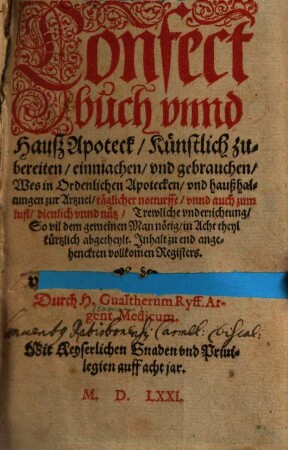 Confect
buch vnnd
Hausz Apoteck / Künstlich zu-
bereiten / einmachen / vnd gebrauchen /
Wes in Ordenlichen Apotecken / vnd haußhal-
tungen zur Artznei / täglicher notturfft / vnnd auch zum
lust / dienlich vnnd nütz / Trewliche vnderrichtung /
So vil dem gemeinen Man nötig / in Acht theyl
kürtzlich abgetheylt. Inhalt zu end ange-
henckten volkomen Registers.
Durch H. Gualtherum Ryff. Ar-
gent. Medicum.
Conventus Ratisbonensis Carmel: Discal:
Mit Keyserlichen Gnaden vnd Priui-
legien auff acht jar.
M. D. LXXI.